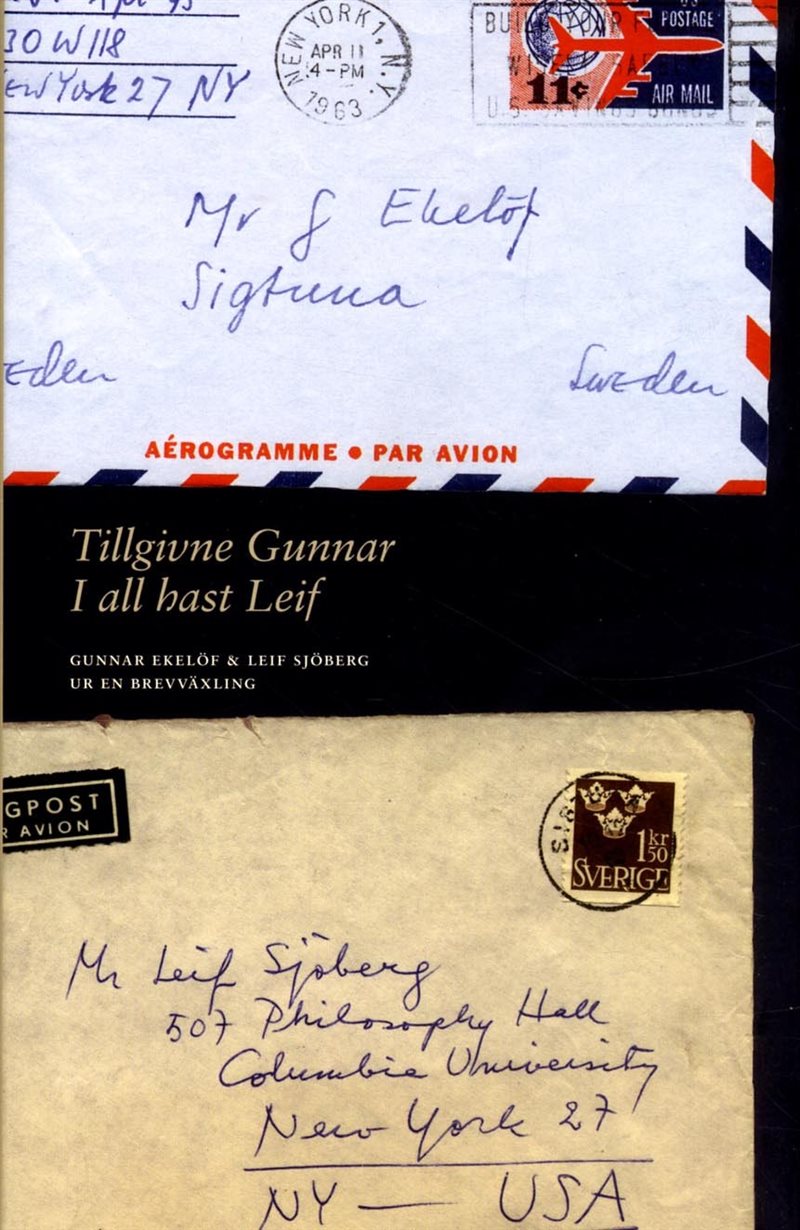 30 W 118
New York 27 NY
NEW YORK 1, N.Y.
APR 11
4-PM
1963
U.S. SAVINGS BONDS
POSTAGE
11¢
AIR MAIL
Mr G Ekelöf
Sigtuna
eden
Sweden
AÉROGRAMME • PAR AVION
Tillgivne Gunnar
I all hast Leif
GUNNAR EKELÖF & LEIF SJÖBERG
UR EN BREVVÄXLING
GPOST
R AVION
SIGT
1 kr
50
SVERIGE
Mr Leif Sjöberg
507 Philosophy Hall
Columbia University
New York 27
NY — USA